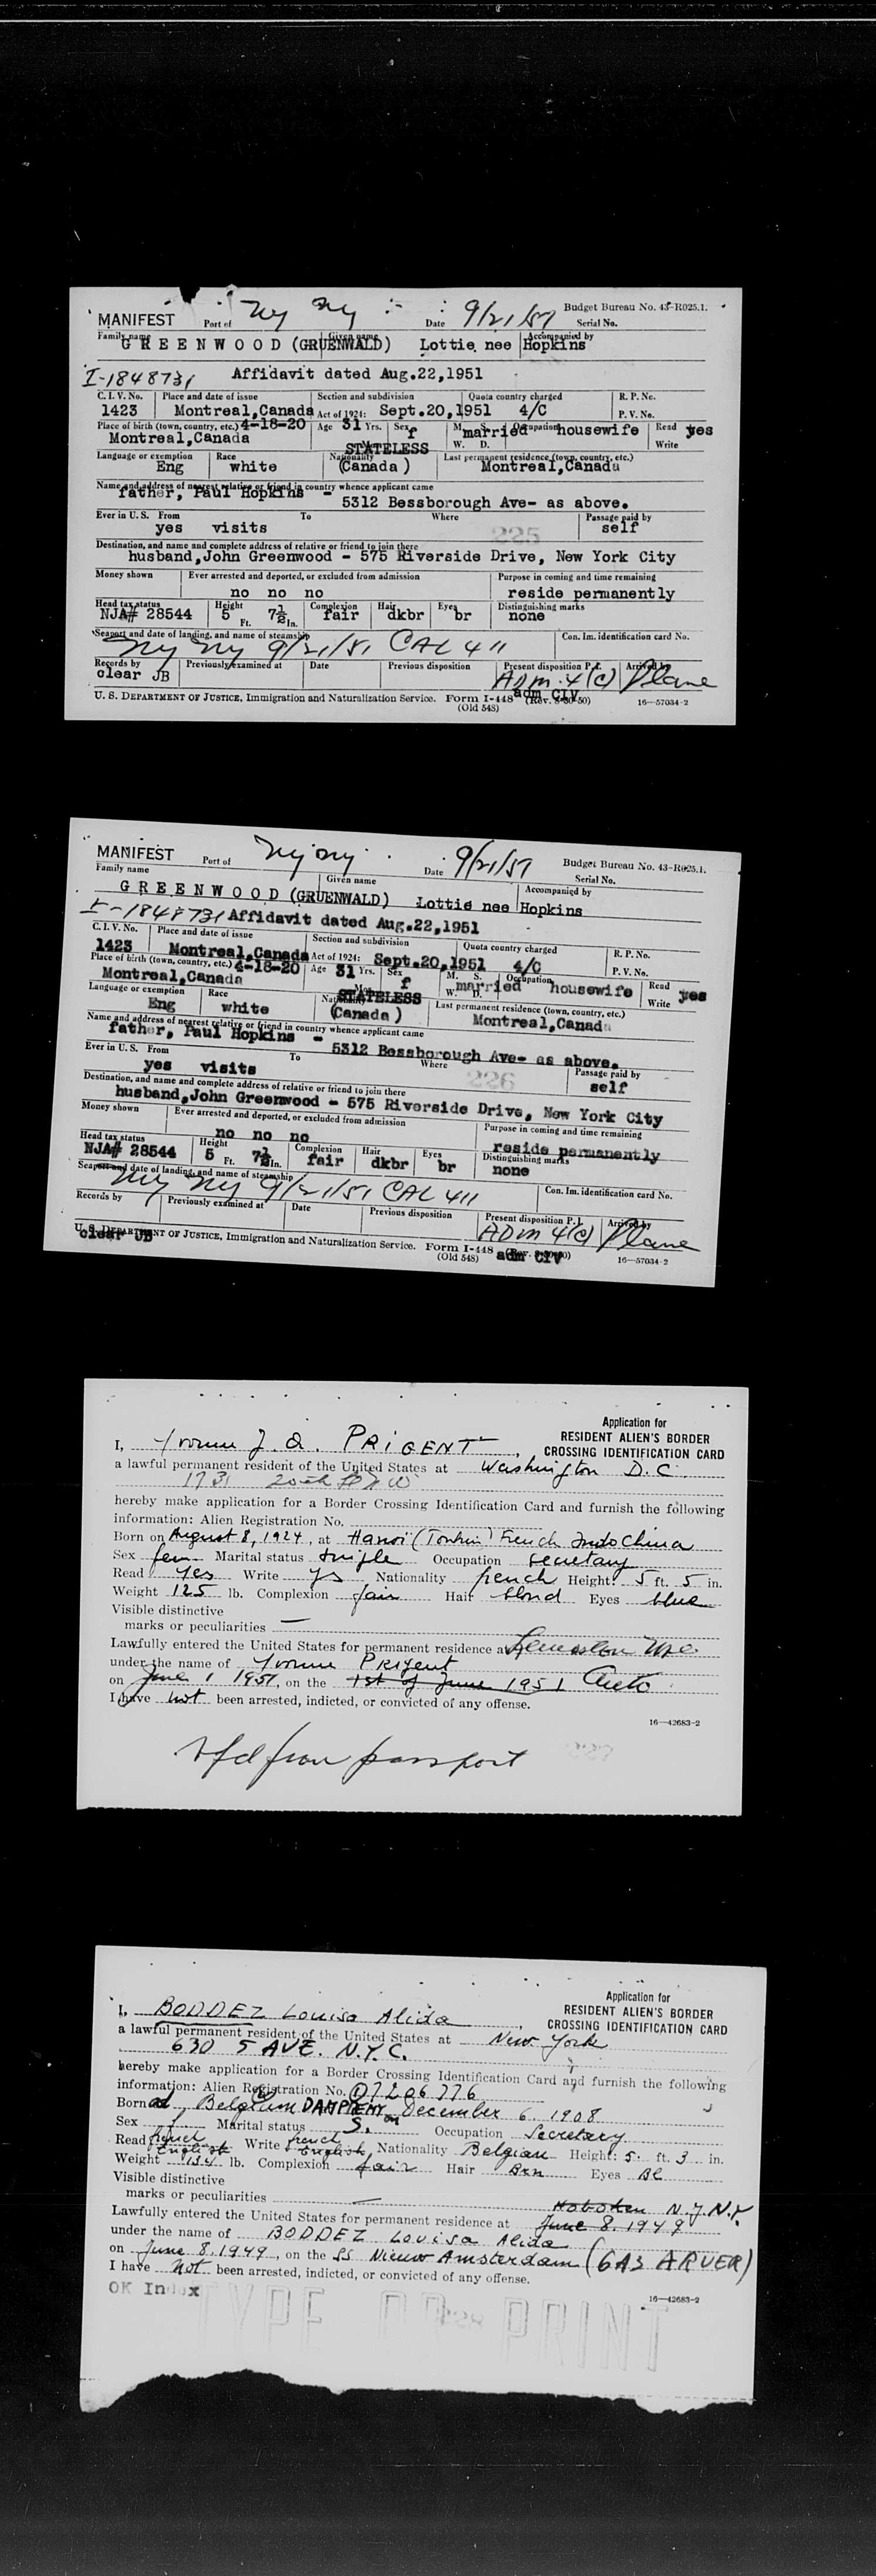 MANIFEST Port of NY NY Date 9/21/51 Budget Bureau No. 43-R025.1.
Serial No.
Family name Given name Accompanied by
GREENWOOD (GRUENWALD) Lottie nee Hopkins
I-1848731 Affidavit dated Aug.22,1951
C. I. V. No. Place and date of issue Section and subdivision Quota country charged R. P. No.
1423 Montreal,Canada Act of 1924: Sept.20,1951 4/C P. V. No.
Place of birth (town, country, etc.) 4-18-20 Age 31 Yrs. Sex f M. S. married Occupation housewife Read yes
Montreal,Canada W. D. Write
STATELESS
Language or exemption Race Nationality Last permanent residence (town, country, etc.)
Eng white (Canada) Montreal,Canada
Name and address of nearest relative or friend in country whence applicant came
father, Paul Hopkins - 5312 Bessborough Ave- as above.
Ever in U. S. From To Where Passage paid by
yes visits 225 self
Destination, and name and complete address of relative or friend to join there
husband,John Greenwood - 575 Riverside Drive, New York City
Money shown Ever arrested and deported, or excluded from admission Purpose in coming and time remaining
no no no reside permanently
Head tax status Height Complexion Hair Eyes Distinguishing marks
NJA# 28544 5 Ft. 7½ In. fair dkbr br none
Seaport and date of landing, and name of steamship Con. Im. identification card No.
NY NY 9/21/51 CAL 411
Records by Previously examined at Date Previous disposition Present disposition P.I. Arrived by
clear JB ADM. 4(c) Plane
adm CIV
U. S. DEPARTMENT OF JUSTICE, Immigration and Naturalization Service. Form I-448 (Rev. 8-30-50) 16—57034-2
(Old 548)
MANIFEST Port of NY NY Date 9/21/51 Budget Bureau No. 43-R025.1.
Serial No.
Family name Given name Accompanied by
GREENWOOD (GRUENWALD) Lottie nee Hopkins
I-1848731 Affidavit dated Aug.22,1951
C. I. V. No. Place and date of issue Section and subdivision Quota country charged R. P. No.
1423 Montreal,Canada Act of 1924: Sept.20,1951 4/C P. V. No.
Place of birth (town, country, etc.) 4-18-20 Age 31 Yrs. Sex f M. S. married Occupation housewife Read yes
Montreal,Canada W. D. Write
STATELESS
Language or exemption Race Nationality Last permanent residence (town, country, etc.)
Eng white (Canada) Montreal,Canada
Name and address of nearest relative or friend in country whence applicant came
father, Paul Hopkins - 5312 Bessborough Ave- as above.
Ever in U. S. From To Where Passage paid by
yes visits 226 self
Destination, and name and complete address of relative or friend to join there
husband,John Greenwood - 575 Riverside Drive, New York City
Money shown Ever arrested and deported, or excluded from admission Purpose in coming and time remaining
no no no reside permanently
Head tax status Height Complexion Hair Eyes Distinguishing marks
NJA# 28544 5 Ft. 7½ In. fair dkbr br none
Seaport and date of landing, and name of steamship Con. Im. identification card No.
NY NY 9/21/51 CAL 411
Records by Previously examined at Date Previous disposition Present disposition P.I. Arrived by
ADM 4(c) Plane
U. S. DEPARTMENT OF JUSTICE, Immigration and Naturalization Service. Form I-448
clear JB (Old 548) adm CIV 16—57034-2
Application for
RESIDENT ALIEN'S BORDER
CROSSING IDENTIFICATION CARD
I, Yvonne J. A. PRIGENT,
a lawful permanent resident of the United States at Washington D.C.
1731 20th St NW
hereby make application for a Border Crossing Identification Card and furnish the following
information: Alien Registration No.
Born on August 8, 1924, at Hanoi (Tonkin) French Indo China
Sex fem Marital status single Occupation secretary
Read yes Write yes Nationality french Height: 5 ft. 5 in.
Weight 125 lb. Complexion fair Hair blond Eyes blue
Visible distinctive
marks or peculiarities —
Lawfully entered the United States for permanent residence at
under the name of Yvonne Prigent
on June 1 1951, on the 1st of June 1951 Auto
I have not been arrested, indicted, or convicted of any offense.
16—42683-2
from passport
Application for
RESIDENT ALIEN'S BORDER
CROSSING IDENTIFICATION CARD
I, BODDEZ Louisa Alida,
a lawful permanent resident of the United States at New York
630 5 AVE. N.Y.C.
hereby make application for a Border Crossing Identification Card and furnish the following
information: Alien Registration No. 7206776
Born at Belgium on December 6 1908
Sex f Marital status S. Occupation Secretary
Read french English Write french English Nationality Belgian Height: 5 ft. 3 in.
Weight 134 lb. Complexion fair Hair Brn Eyes Bl
Visible distinctive
marks or peculiarities — Hoboken N.J. N.Y.
Lawfully entered the United States for permanent residence at June 8. 1949
under the name of BODDEZ Louisa Alida
on June 8 1949, on the SS Nieuw Amsterdam
I have not been arrested, indicted, or convicted of any offense.
OK Index 16—42683-2
TYPE OR PRINT